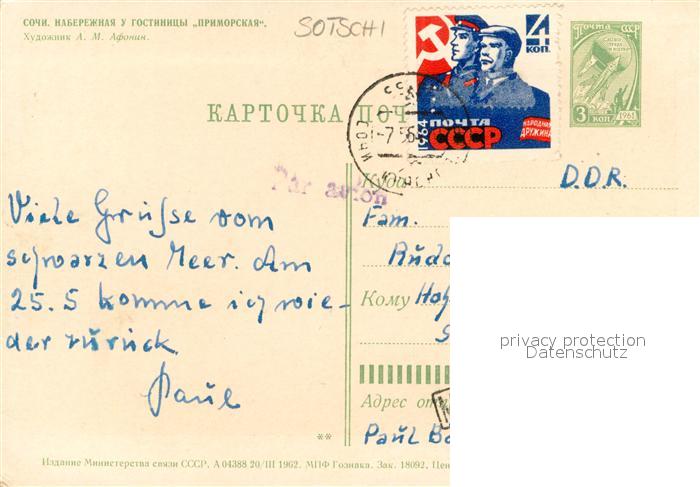 СОЧИ. НАБЕРЕЖНАЯ У ГОСТИНИЦЫ „ПРИМОРСКАЯ“.
Художник А. М. Афонин.
SOTSCHI
4 КОП.
ПОЧТА СССР
3 КОП.
1961
КАРТОЧКА ПОЧ
1964
ПОЧТА
СССР
НАРОДНАЯ ДРУЖИНА
Par avion
Куда
D.D.R.
Viele Grüße vom
schwarzen Meer. Am
25.5 komme ich wie-
der zurück
Paul
Fam.
Rudo
Кому
Адрес отп
Paul Ba
privacy protection
Datenschutz
**
Издание Министерства связи СССР. А 04388 20/III 1962. МПФ Гознака. Зак. 18092. Цен